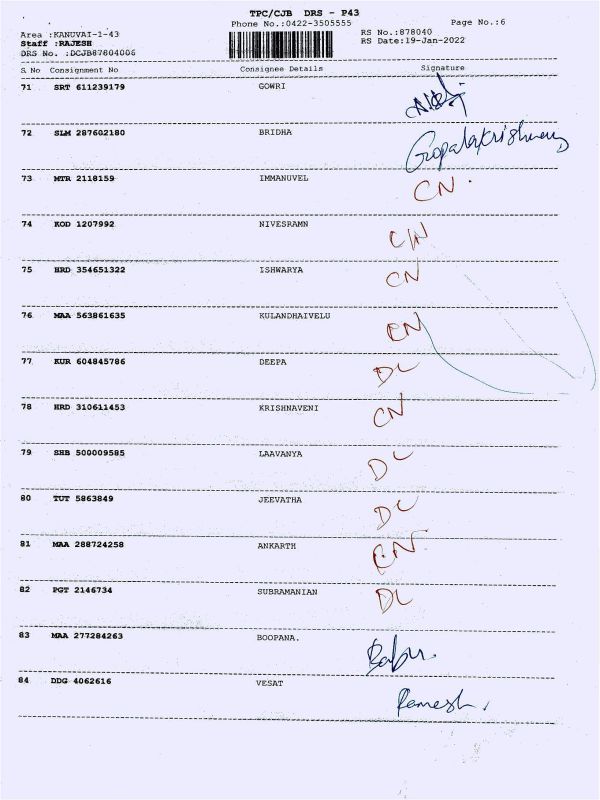 TPC/CJB DRS - P43
Phone No.:0422-3505555 Page No.:6
Area :KANUVAI-1-43 RS No.:878040
Staff :RAJESH RS Date:19-Jan-2022
DRS No. :DCJB87804006
S No Consignment No Consignee Details Signature
71 SRT 611239179 GOWRI
72 SLM 287602180 BRIDHA Gopalakrishnan
73 MTR 2118159 IMMANUVEL CN.
74 KOD 1207992 NIVESRAMN CN
75 HRD 354651322 ISHWARYA CN
76 MAA 563861635 KULANDHAIVELU CN
77 KUR 604845786 DEEPA DL
78 HRD 310611453 KRISHNAVENI CN
79 SHB 500009585 LAAVANYA DL
80 TUT 5863849 JEEVATHA DL
81 MAA 288724258 ANKARTH CN
82 PGT 2146734 SUBRAMANIAN DL
83 MAA 277284263 BOOPANA.
84 DDG 4062616 VESAT Ramesh.